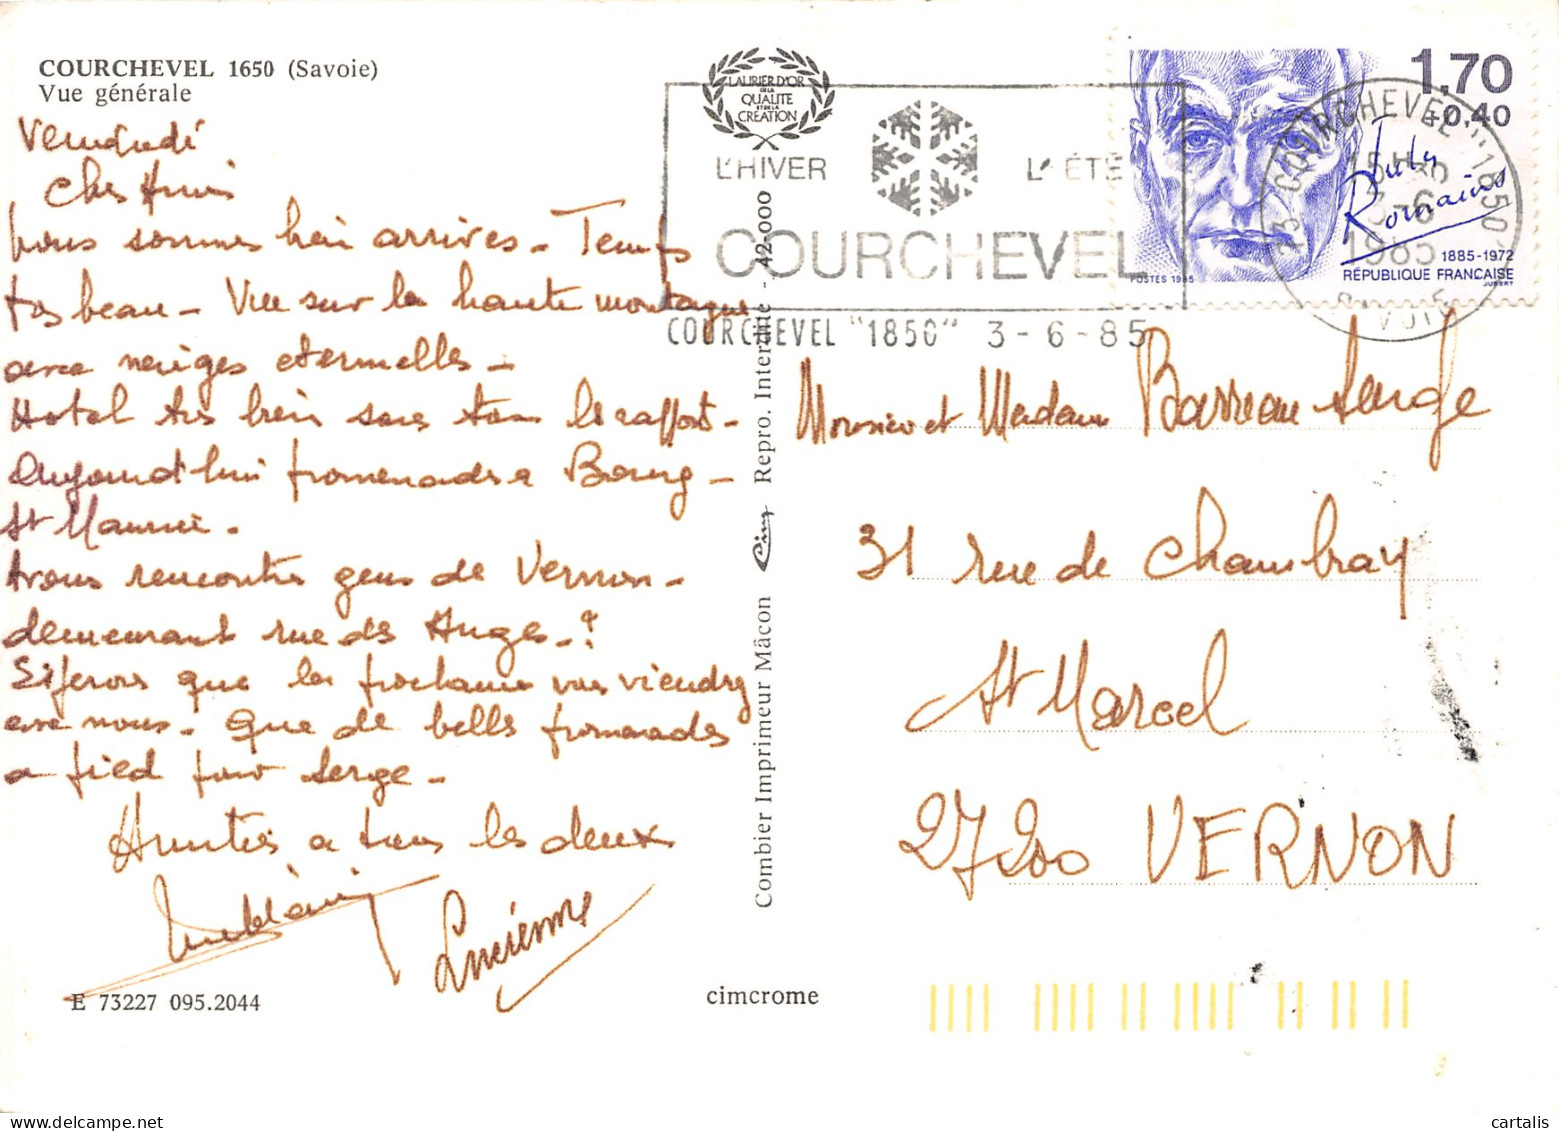 COURCHEVEL 1650 (Savoie)
Vue générale
Vendredi
Chers Amis
Nous sommes bien arrivés - Temps
très beau - Vue sur la haute montagne
avec neiges eternelles -
Hotel très bien sous tous les rapports -
Aujourd'hui promenade à Bourg -
St Maurice -
Avons rencontrés gens de Vernon -
demeurant rue des Anges - ?
Esperons que la prochaine vous viendrez
avec nous - Que de belles promenades
a pied pour Serge -
Amitiés a tous les deux
Lucienne
E 73227 095.2044
Combier Imprimeur Mâcon Repro. Interdite - 42.000
cimcrome
LAURIER D'OR
DE LA
QUALITE
ET DE LA
CREATION
L'HIVER L'ÉTÉ
COURCHEVEL
COURCHEVEL "1850" 3-6-85
1,70
+0,40
Jules
Romains
1885-1972
RÉPUBLIQUE FRANÇAISE
POSTES 1985
JUBERT
73 COURCHEVEL "1850"
15H30
3-6
1985
SAVOIE
Monsieur et Madame Barreau Serge
31 rue de Chambray
St Marcel
27200 VERNON
cartalis